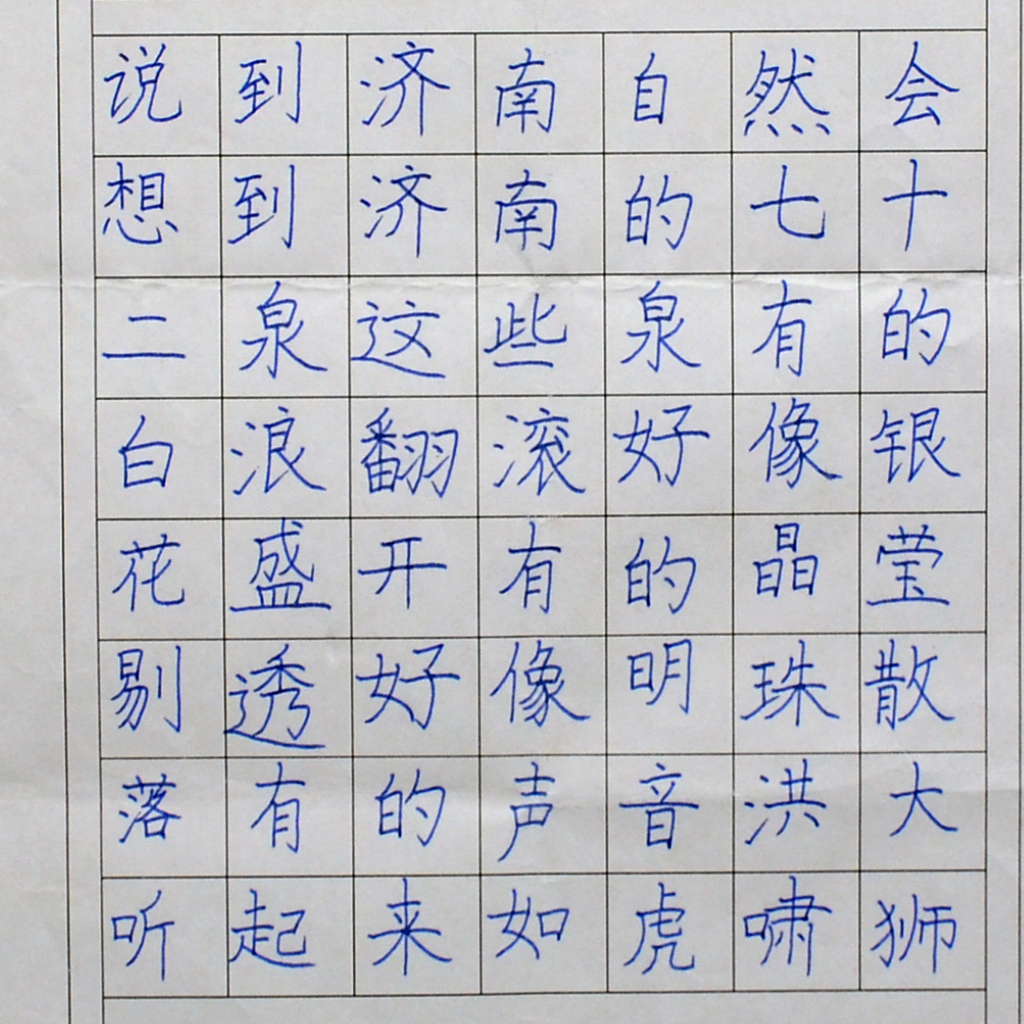 说到济南自然会
想到济南的七十
二泉这些泉有的
白浪翻滚好像银
花盛开有的晶莹
剔透好像明珠散
落有的声音洪大
听起来如虎啸狮